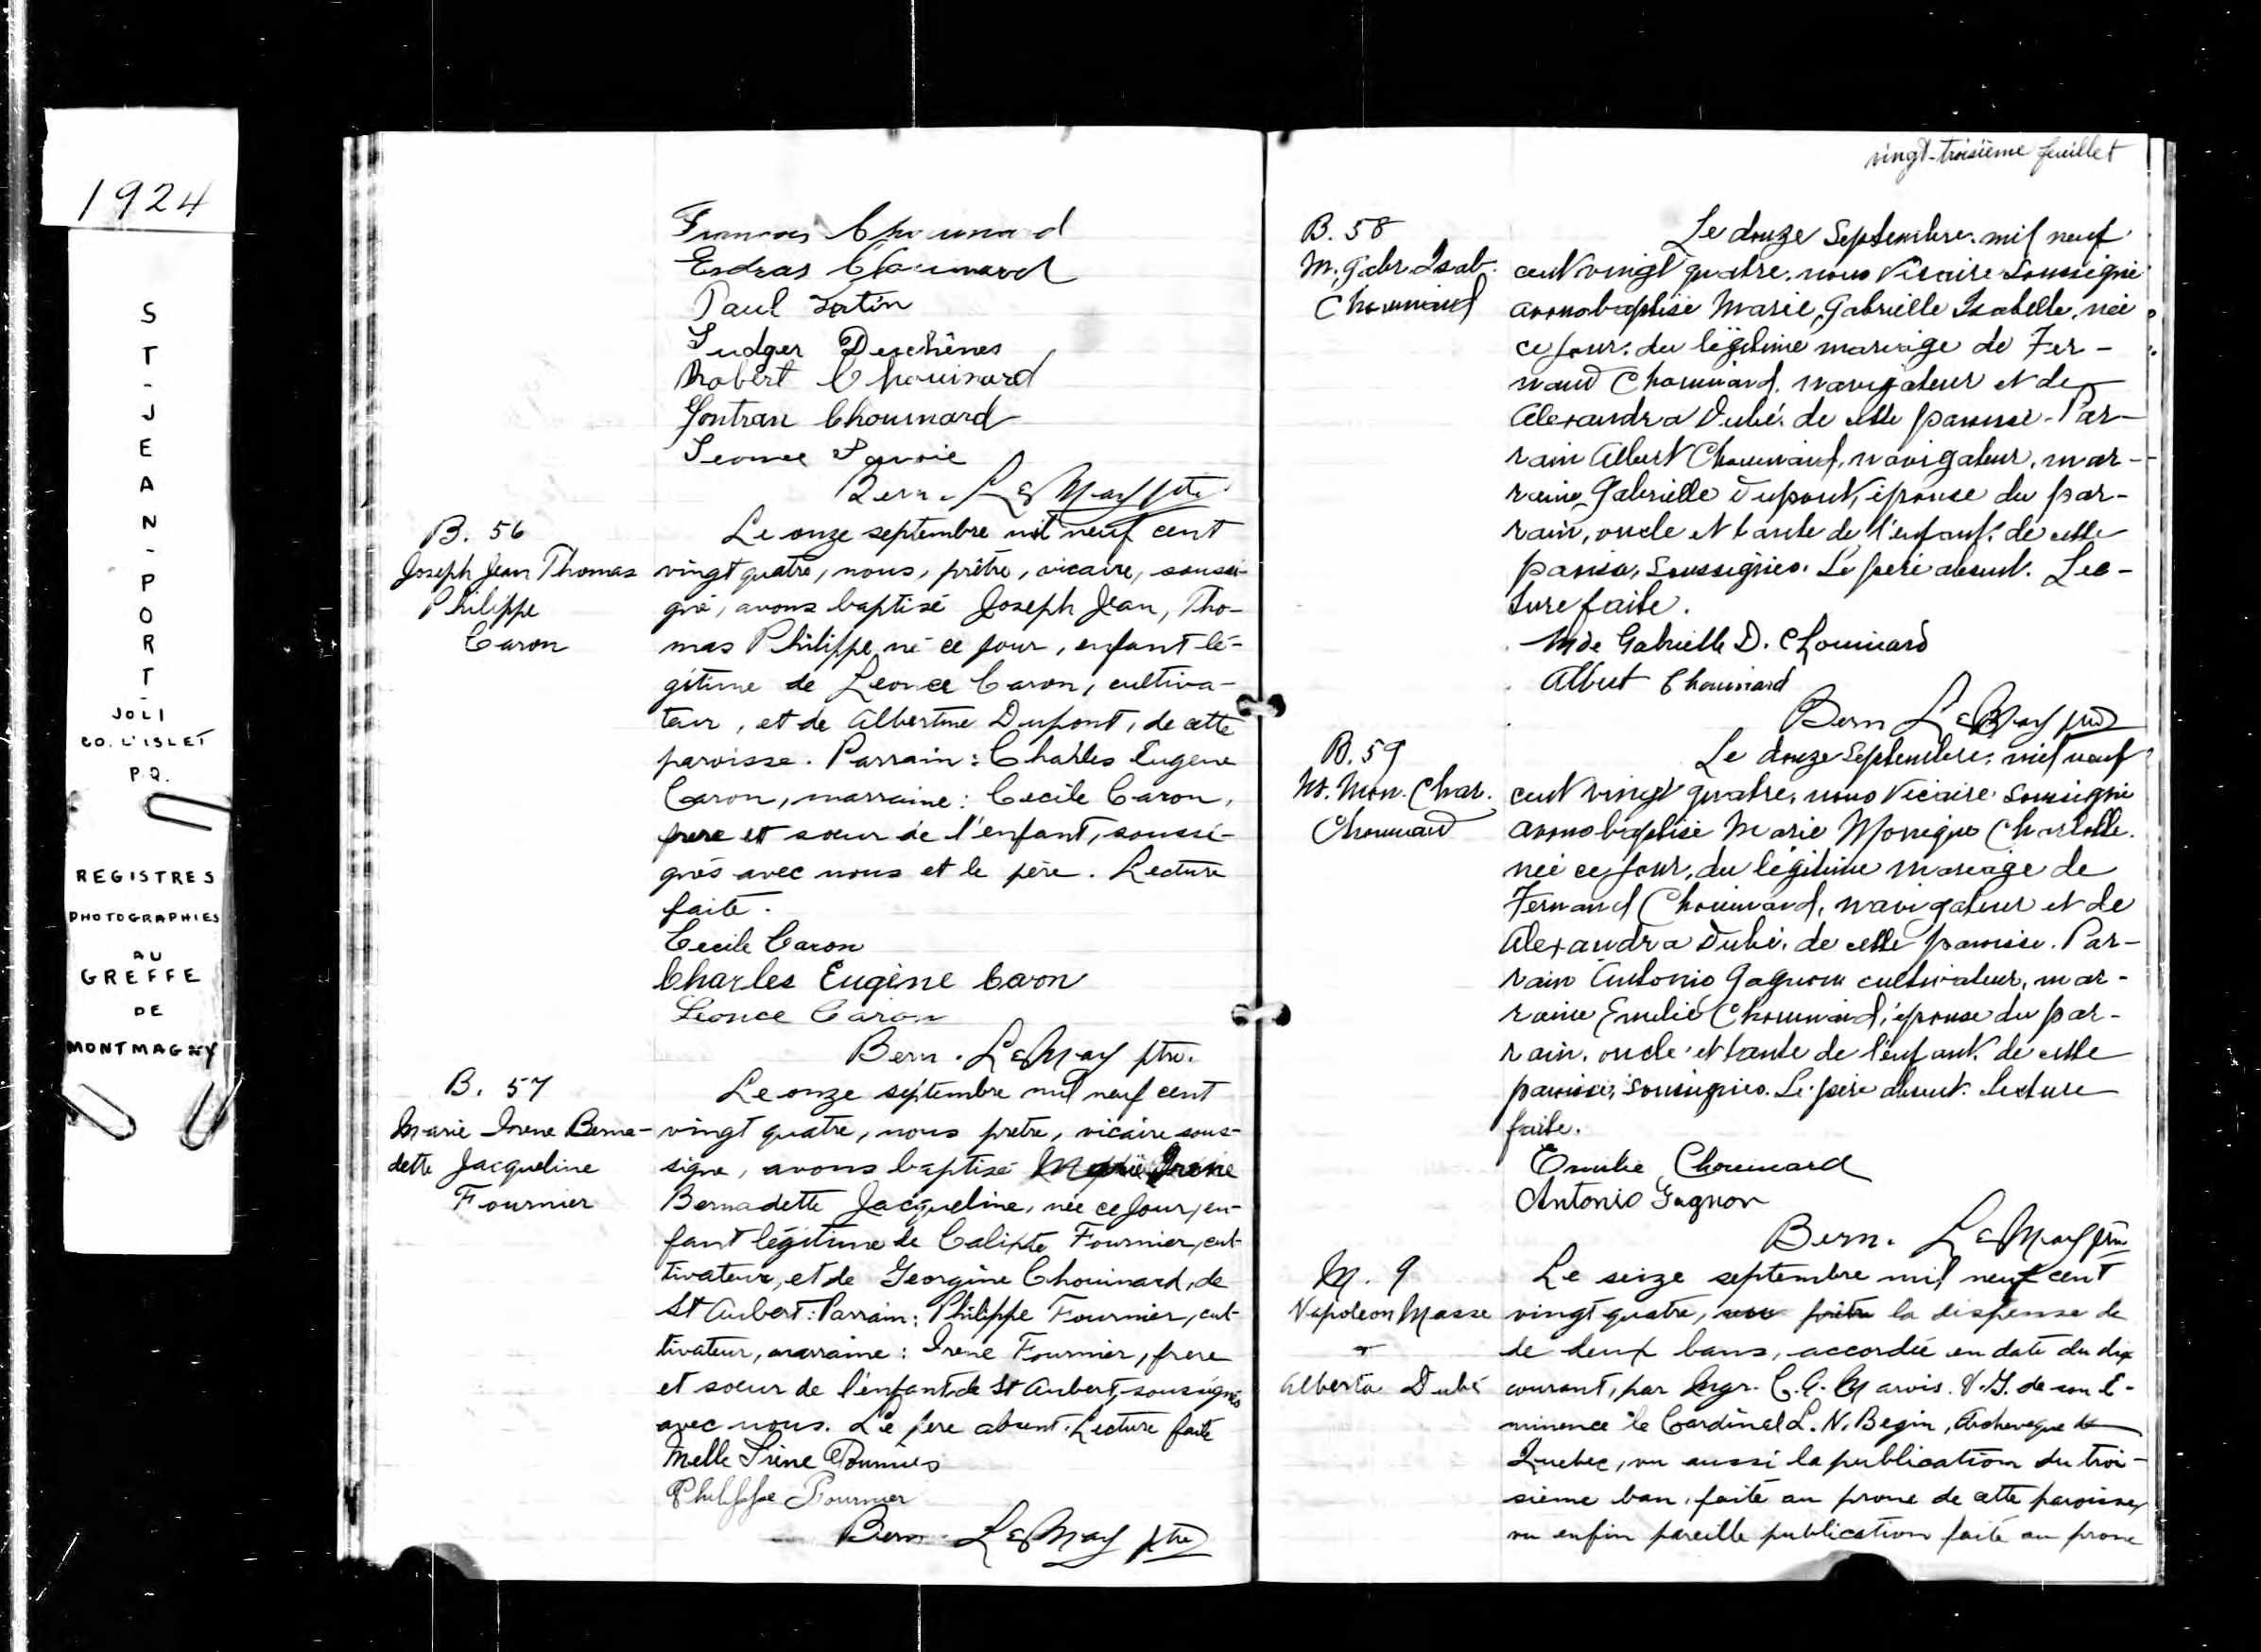 1924
ST-JEAN-PORT-
JOLI
CO. L'ISLET
P.Q.
REGISTRES
PHOTOGRAPHIES
AU
GREFFE
DE
MONTMAGNY
Francois Chouinard
Esdras Chouinard
Paul Fortin
Judger Deschênes
Robert Chouinard
Gontran Chouinard
Leonce Savoie
Bern. LeMay ptre
B. 56
Joseph Jean Thomas
Philippe
Caron
Le onze septembre mil neuf cent
vingt quatre, nous, prêtre, vicaire, soussi-
gné, avons baptisé Joseph Jean, Tho-
mas Philippe né ce jour, enfant lé-
gitime de Leonce Caron, cultiva-
teur, et de Albertine Dupont, de cette
paroisse. Parrain: Charles Eugene
Caron, marraine: Cecile Caron,
frere et soeur de l'enfant, soussi-
gnés avec nous et le père. Lecture
faite.
Cecile Caron
Charles Eugène Caron
Léonce Caron
Bern. LeMay ptre.
B. 57
Marie Irene Berna-
dette Jacqueline
Fournier
Le onze septembre mil neuf cent
vingt quatre, nous pretre, vicaire sous-
signe, avons baptisé Marie Irene
Bernadette Jacqueline, née ce jour, en-
fant légitime de Calixte Fournier, cul-
tivateur, et de Georgine Chouinard, de
St Aubert: Parrain: Philippe Fournier, cul-
tivateur, marraine: Irene Fournier, frere
et soeur de l'enfant de St Aubert, soussignés
avec nous. Le pere absent. Lecture faite
Melle Irène Fournier
Philippe Fournier
Bern. LeMay ptre
vingt-troisième feuillet
B. 58
M. Gabr. Isab.
Chouinard
Le douze Septembre. mil neuf
cent vingt quatre. nous Vicaire soussigné
avons baptisé Marie, Gabrielle Isabelle, née
ce jour. du légitime mariage de Fer-
nand Chouinard. navigateur et de
Alexandra Dubé. de cette paroisse. Par-
rain Albert Chouinard, navigateur, mar-
raine, Gabrielle Dupont, épouse du par-
rain, oncle et tante de l'enfant. de cette
paroisse, soussignés. Le père absent. Lec-
ture faite.
Mde Gabrielle D. Chouinard
Albert Chouinard
Bern LeMay ptre
B. 59
M. Mon. Char.
Chouinard
Le douze Septembre, mil neuf
cent vingt quatre, nous Vicaire soussigné
avons baptisé Marie Monique Charlotte.
née ce jour, du légitime mariage de
Fernand Chouinard, navigateur et de
Alexandra Dubé, de cette paroisse. Par-
rain Antonio Gagnon cultivateur, mar-
raine Emelie Chouinard, épouse du par-
rain. oncle et tante de l'enfant. de cette
paroisse, soussignés. Le père absent. Lecture
faite.
Emelie Chouinard
Antonio Gagnon
Bern. LeMay ptre
M. 9
Napoleon Masse
et
Alberta Dubé
Le seize septembre mil neuf cent
vingt quatre, vu la dispense de
de deux bans, accordée en date du dix
courant, par Mgr. C. A. Marois. V.G. de son E-
minence le Cardinal L. N. Begin, Archeveque de
Quebec, vu aussi la publication du troi-
sième ban, faite au prone de cette paroisse,
vu enfin pareille publication faite au prone